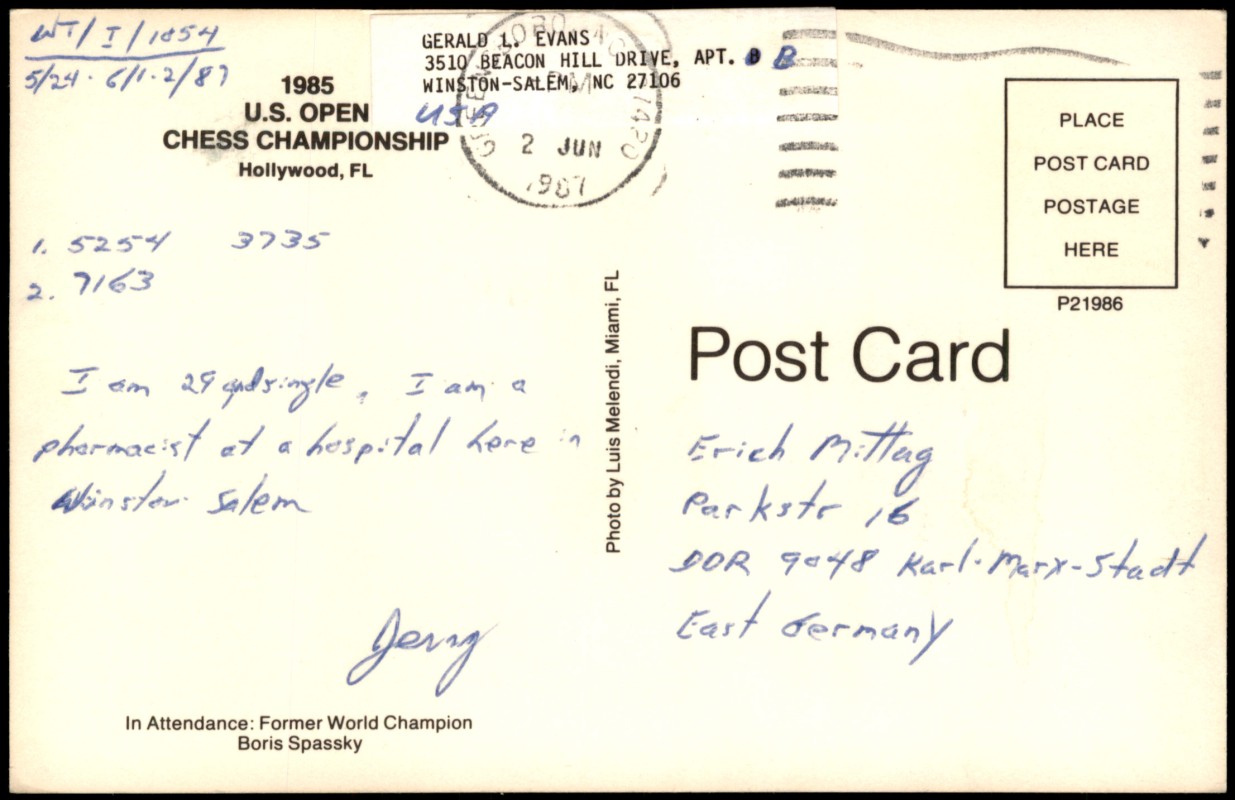 WT/I/1054
5/24 · 6/1·2/87
GERALD L. EVANS
3510 BEACON HILL DRIVE, APT. B B
WINSTON-SALEM, NC 27106
USA
1985
U.S. OPEN
CHESS CHAMPIONSHIP
Hollywood, FL
GREENSBORO NC 27420
PM
2 JUN
1987
PLACE
POST CARD
POSTAGE
HERE
P21986
1. 5254 3735
2. 7163
I am 29 and single, I am a
pharmacist at a hospital here in
Winston Salem
Jerry
In Attendance: Former World Champion
Boris Spassky
Photo by Luis Melendi, Miami, FL
Post Card
Erich Mittag
Parkstr 16
DDR 9048 Karl-Marx-Stadt
East Germany